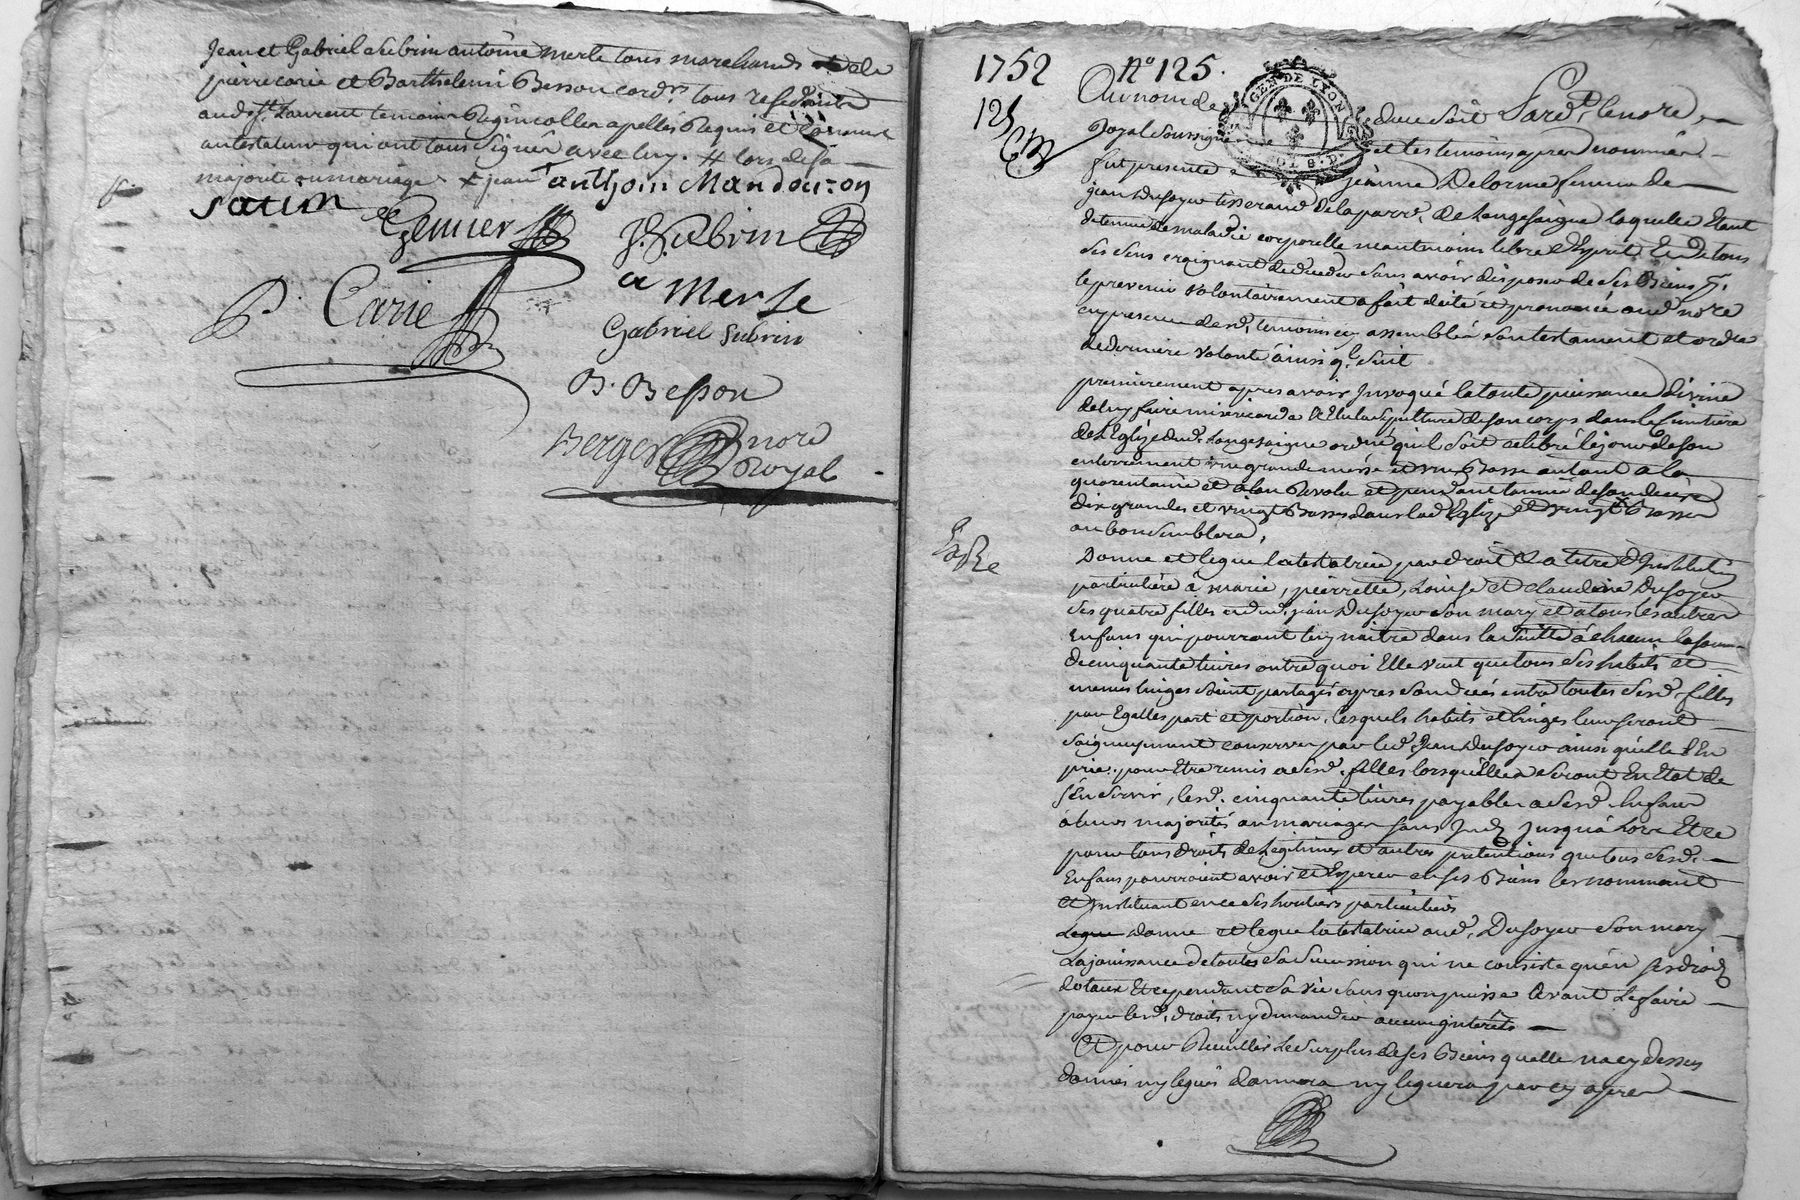 Jean et Gabriel Subrin antoine merle tous marchands
pierre carie et Barthelemi Besson cord.rs tous residents
aud. St. Laurent temoins Requis collen apellés Requis et
au testateur qui ont tous Signés avec luy. # lors de sa
majorité ou mariage x jean anthoin Mandouzon
satin Genuer J. Subrin
P. Carie a Merle
Gabriel Subrin
B. Besson
Berger nore
Royal
1752 No 125.
125
Au nom de dieu Soit Sard. le nore
GEN DE LYON
Royal Soussigné et les temoins apres nommés
fut presente jeanne Delorme femme de
jean Dufoyer tisserand de la parr. de Longesaigne laquelle Etant
detenue de maladie corporelle neantmoins libre d'Esprit Et de tous
ses sens craignant de deceder sans avoir disposer de ses Biens p.
le prevenir volontairement a fait dicté et prononcé aud. nore
en presence desd. temoins cy assemblés son testament et ordre
de derniere volonté ainsi q. suit
premierement apres avoir Invoqué la toute puissance divine
de luy faire misericorde Elu la Sepulture de son corps dans le Cimitiere
de l'Eglize dud. Longesaigne ordne quil soit celebré le jour de son
enterrement une grande messe et une Basse autant a la
quarantaine et a l'an Revolu et pendant l'année de son deces
dix grandes et vingt Basses dans lad. Eglize et vingt Basses
ou bon semblera,
Donne et legue la testatrice par droit et a titre d'Institution
particuliere à marie, pierrette, Louise et claudine Dufoyer
ses quatre filles et dud. jean Dufoyer son mary et a tous les autres
Enfans qui pourront luy naitre dans la suitte à chacun la somme
de cinquante livres outre quoi Elle veut que tous ses habits et
menus linges soient partagés apres son deces entre toutes sesd. filles
par Egalles part et portion, lesquels habits et linges leur seront
soigneusement conserver par led. Jean Dufoyer ainsi quelle l'En
prie, pour Etre remis a sesd. filles lorsquelles seront En Etat de
s'En servir, lesd. cinquante livres payables a sesd. Enfans
à leurs majorités ou mariages sans jusqu'a lors Et ce
pour tous droits de legitimes et autres pretentions que tous sesd.
Enfans pourroient avoir et Esperer en ses Biens les nommant
et Instituant en ce ses heritiers particuliers
Legue donne et legue la testatrice aud. Dufoyer son mary
La jouissance de toutes sa succession qui ne consiste qu'en ses droits
dotaux Et ce pendant sa vie sans quon puisse Avant Le faire
payer lesd. droits ny demander aucuns interets
Et pour Recuillir Le Surplus de ses Biens quelle na cy dessus
donnés ny legués donnera ny leguera par cy apres